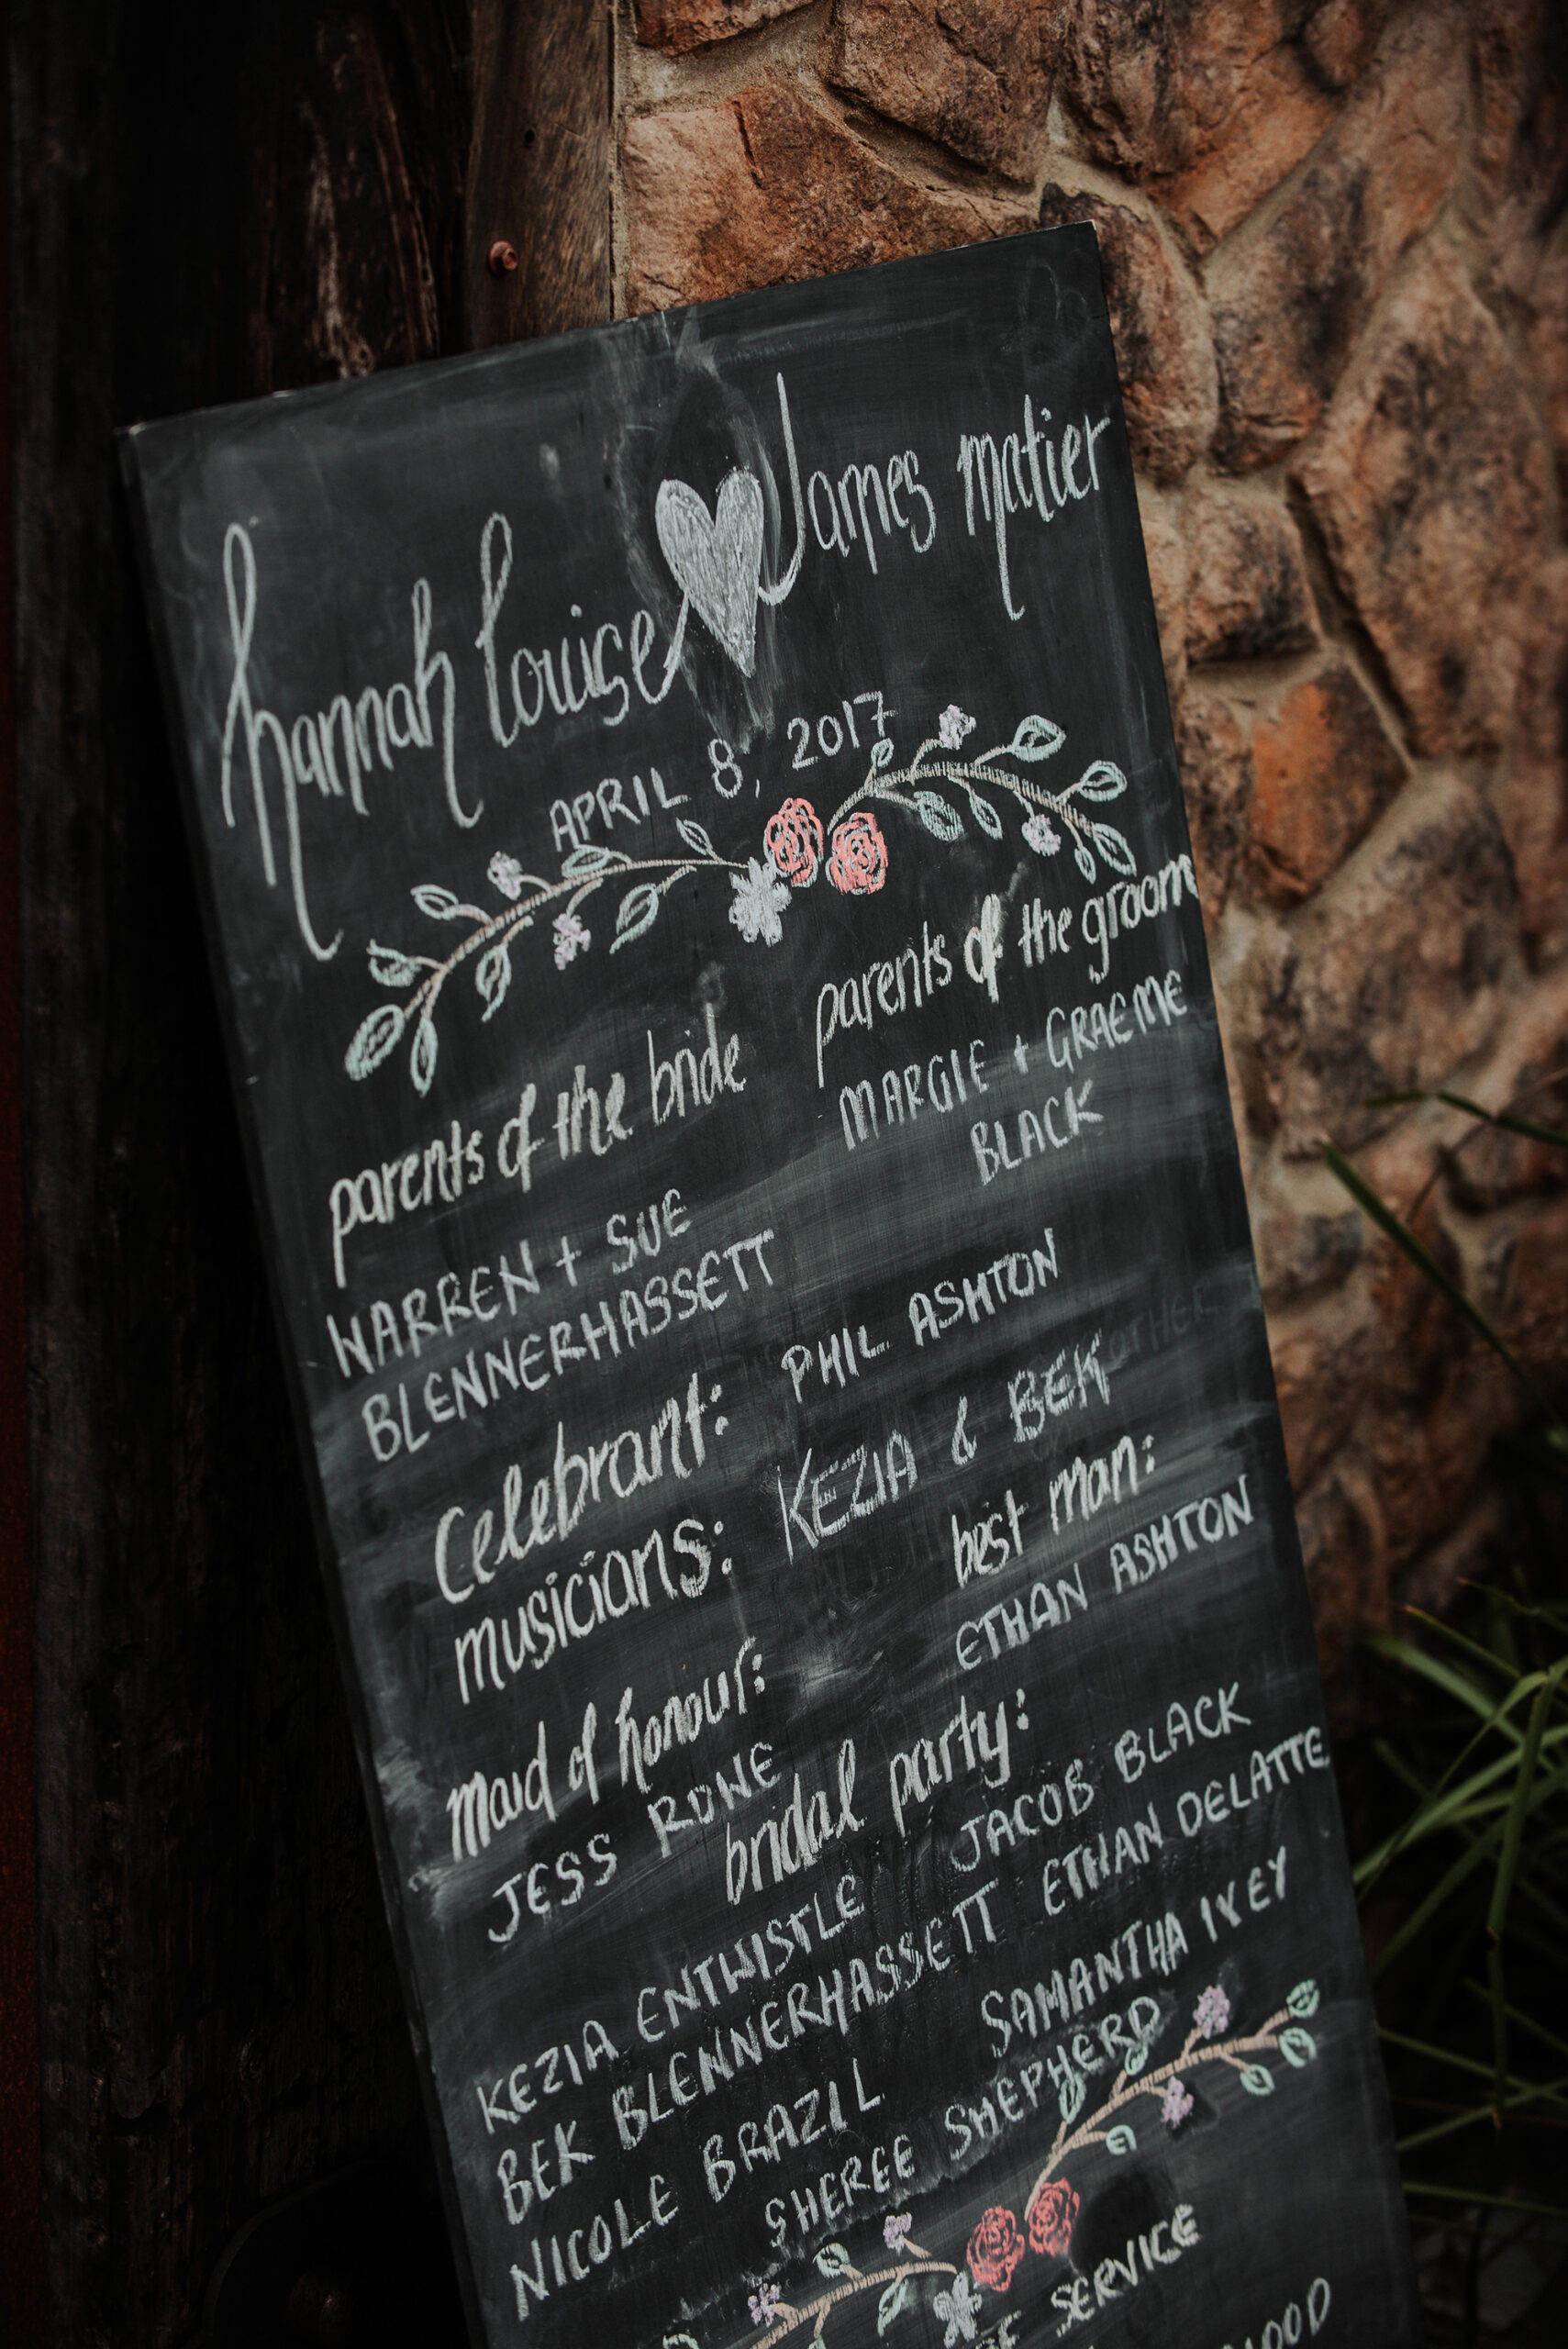 hannah louise James matier
APRIL 8, 2017
parents of the bride
WARREN + SUE
BLENNERHASSETT
parents of the groom
MARGIE + GRAEME
BLACK
Celebrant: PHIL ASHTON
musicians: KEZIA & BEK
maid of honour:
JESS ROWE
best man:
ETHAN ASHTON
bridal party:
KEZIA ENTWISTLE JACOB BLACK
BEK BLENNERHASSETT ETHAN DELATTE
NICOLE BRAZIL SAMANTHA IVEY
SHEREE SHEPHERD
SERVICE